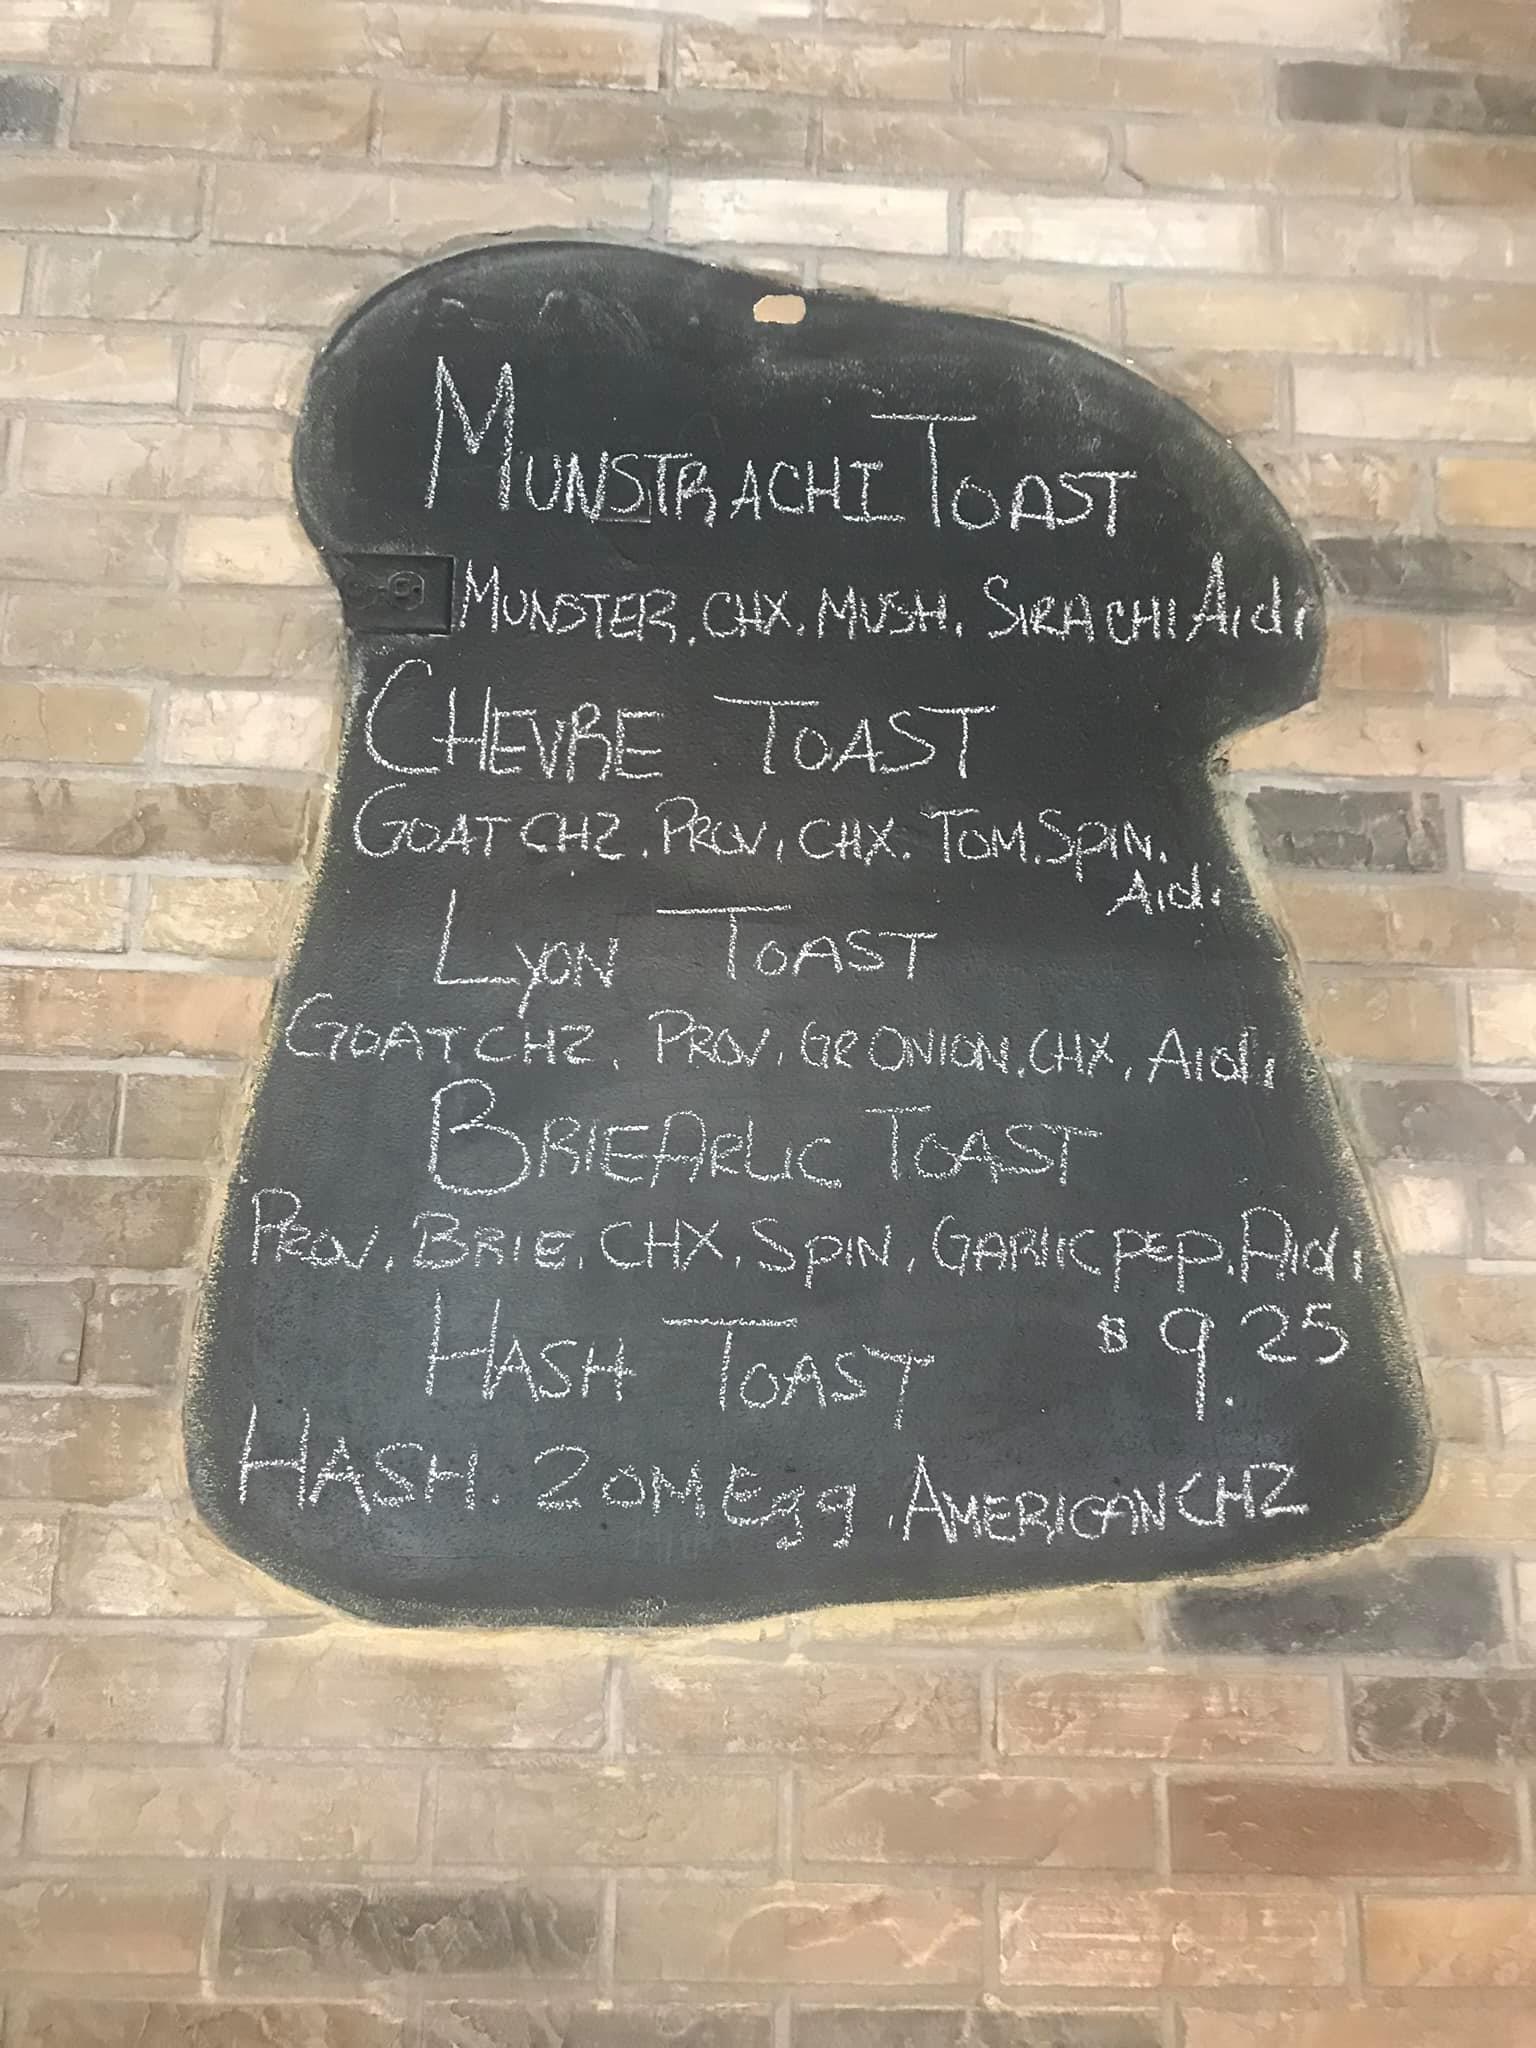 MUNSTRACHI TOAST
MUNSTER. CHX. MUSH. SIRACHI Aidi
CHEVRE TOAST
GOAT CHZ. PROV, CHX. TOM. SPIN.
Aidi
LYON TOAST
GOAT CHZ, PROV, GR ONION, CHX, Aidi
BRIEARLIC TOAST
PROV, BRIE, CHX, SPIN, GARLIC PEP, Aidi
HASH TOAST $9.25
HASH. 2 OM Egg, AMERICAN CHZ